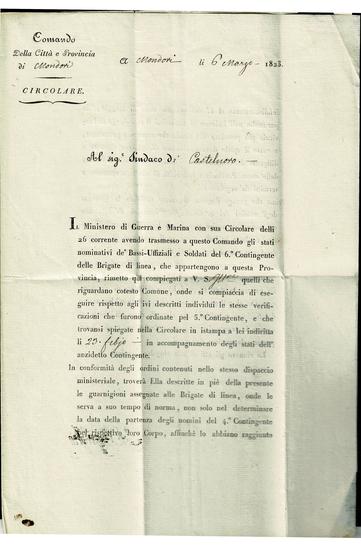 Comando
Della Città e Provincia
di Mondovì
CIRCOLARE.
A Mondovì li 6 Marzo 1823.
Al sig.r Sindaco di Castelnovo.
IL Ministero di Guerra e Marina con sua Circolare delli
26 corrente avendo trasmesso a questo Comando gli stati
nominativi de' Bassi-Uffiziali e Soldati del 6.° Contingente
delle Brigate di linea, che appartengono a questa Pro-
vincia, rimetto qui compiegati a V. S. quelli che
riguardano cotesto Comune, onde si compiaccia di ese-
guire rispetto agli ivi descritti individui le stesse verifi-
cazioni che furono ordinate pel 5.° Contingente, e che
trovansi spiegate nella Circolare in istampa a lei indiritta
li 23 in accompagnamento degli stati dell'
anzidetto Contingente.
In conformità degli ordini contenuti nello stesso dispaccio
ministeriale, troverà Ella descritte in piè della presente
le guarnigioni assegnate alle Brigate di linea, onde le
serva a suo tempo di norma, non solo nel determinare
la data della partenza degli uomini del 4.° Contingente
pel rispettivo loro Corpo, affinchè lo abbiano raggiunto